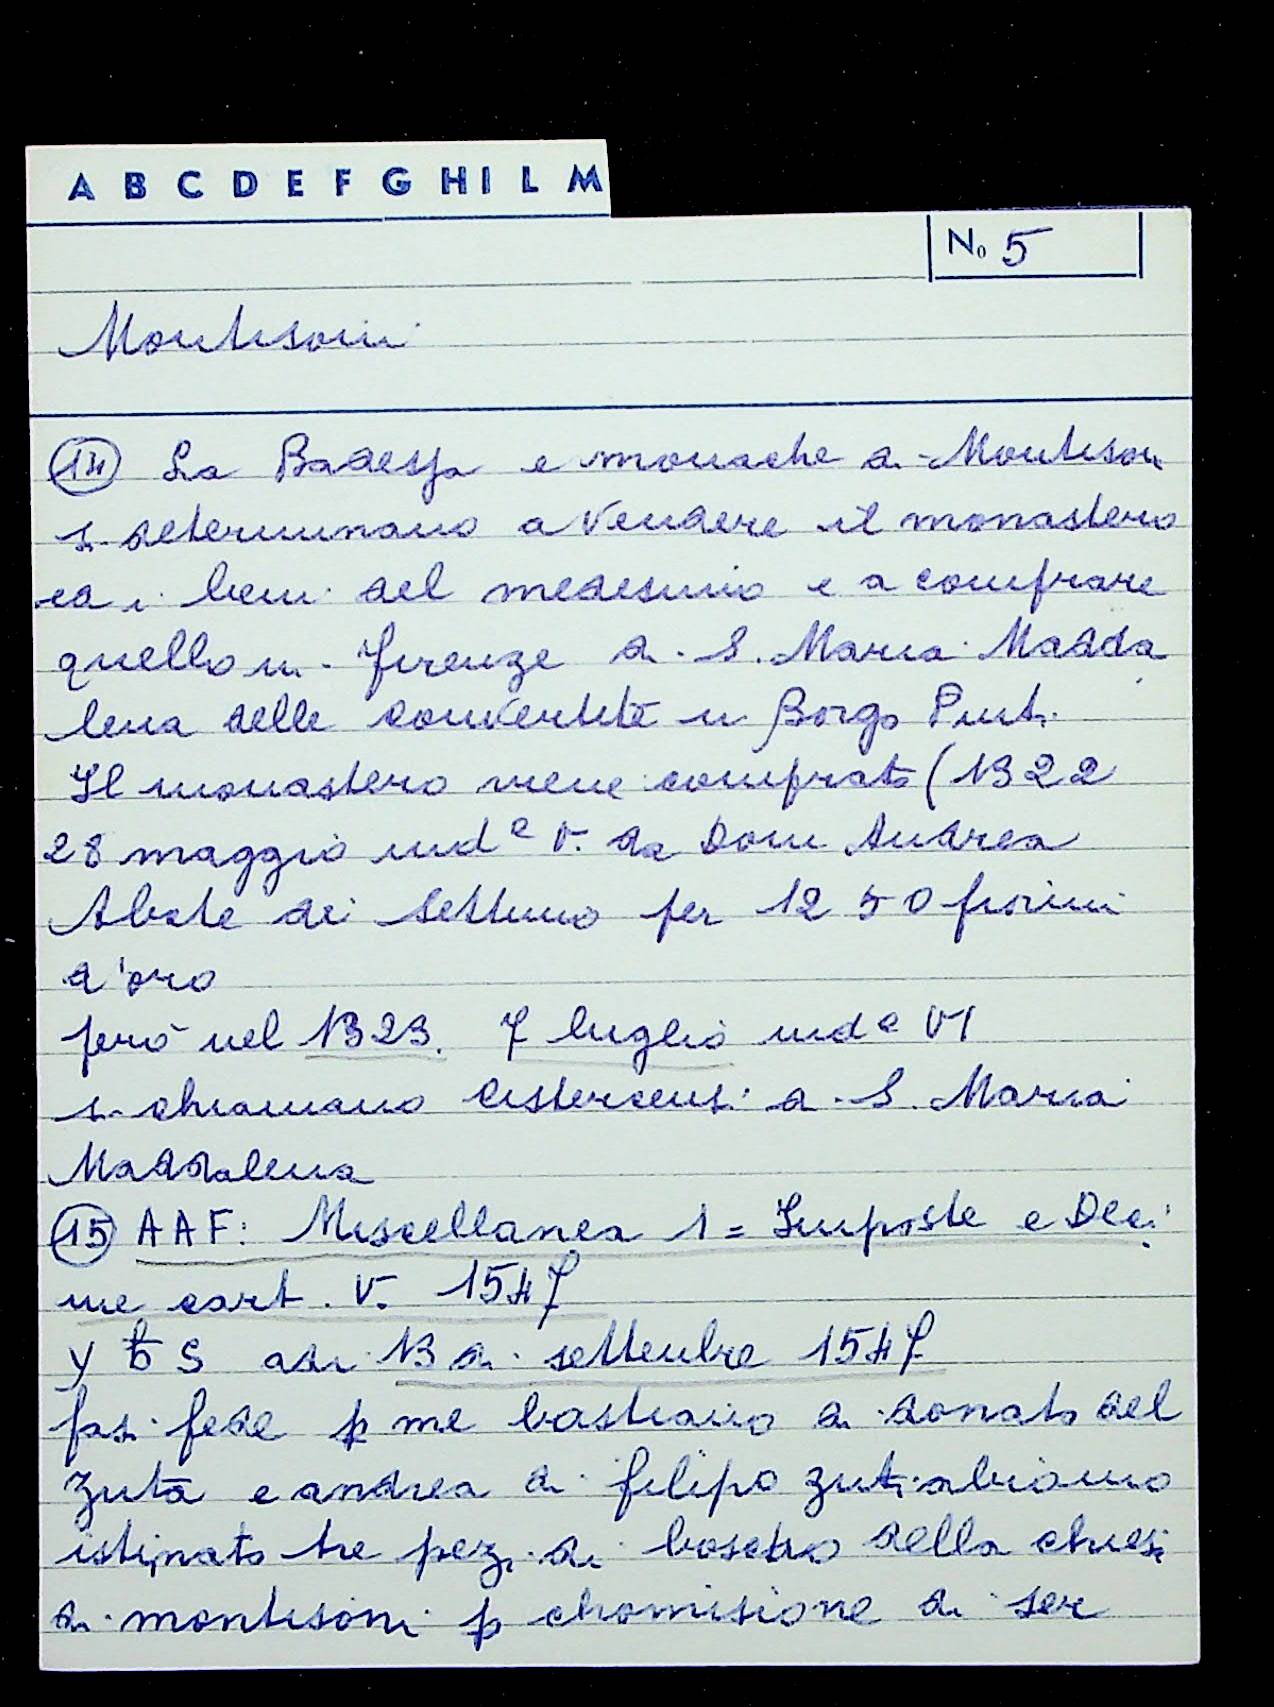 A B C D E F G H I L M
No 5
Montisoni
14 La Badessa e monache di Montison
si determinano a vendere il monastero
ed i beni del medesimo e a comprare
quello in Firenze di S. Maria Madda
lena delle convertite in Borgo Pinti.
Il monastero viene comprato (1322
28 maggio ind e V. da Dom Andrea
Abate di Settimo per 1250 fiorini
d'oro
però nel 1323. 7 luglio ind e VI
si chiamano Cistercensi di S. Maria
Maddalena
15 AAF: Miscellanea 1 = Imposte e Deci
me cart. V. 1547
y b S adi 13 di settembre 1547
fasi fede p me bastiano di donato del
zuta e andrea di filipo zuti abiamo
istimato tre pezi di boscho della chiesi
di montisoni p chomisione di ser